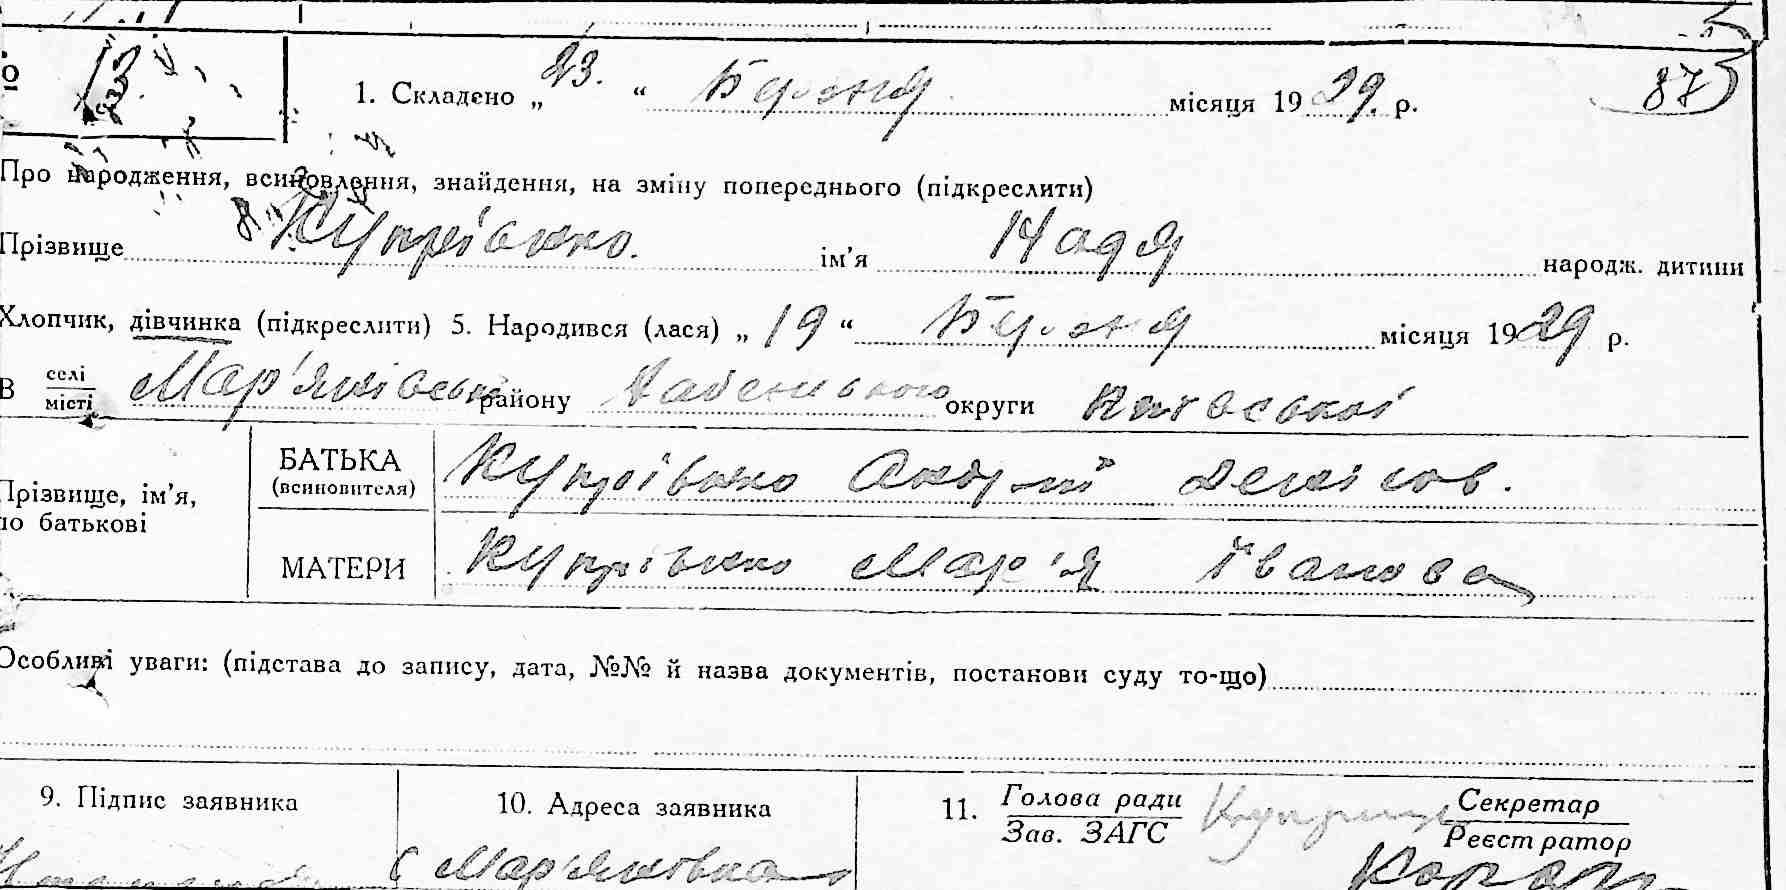 13
1. Складено „ 23. “ Березня місяця 1929. р. 87
Про народження, всиновлення, знайдення, на зміну попереднього (підкреслити)
Прізвище Купрієнко. ім’я Надя народж. дитини
Хлопчик, дівчинка (підкреслити) 5. Народився (лася) „ 19 “ Березня місяця 1929 р.
В селі
місті Мар'янівськ району округи Київської
БАТЬКА
(всиновителя) Купрієнко Андрій Денісов.
Прізвище, ім’я,
по батькові
МАТЕРИ Купрієнко Мар'я Іванова
Особливі уваги: (підстава до запису, дата, №№ й назва документів, постанови суду то-що)
9. Підпис заявника 10. Адреса заявника 11. Голова ради Секретар
Зав. ЗАГС Реєстратор
С Мар'янівка